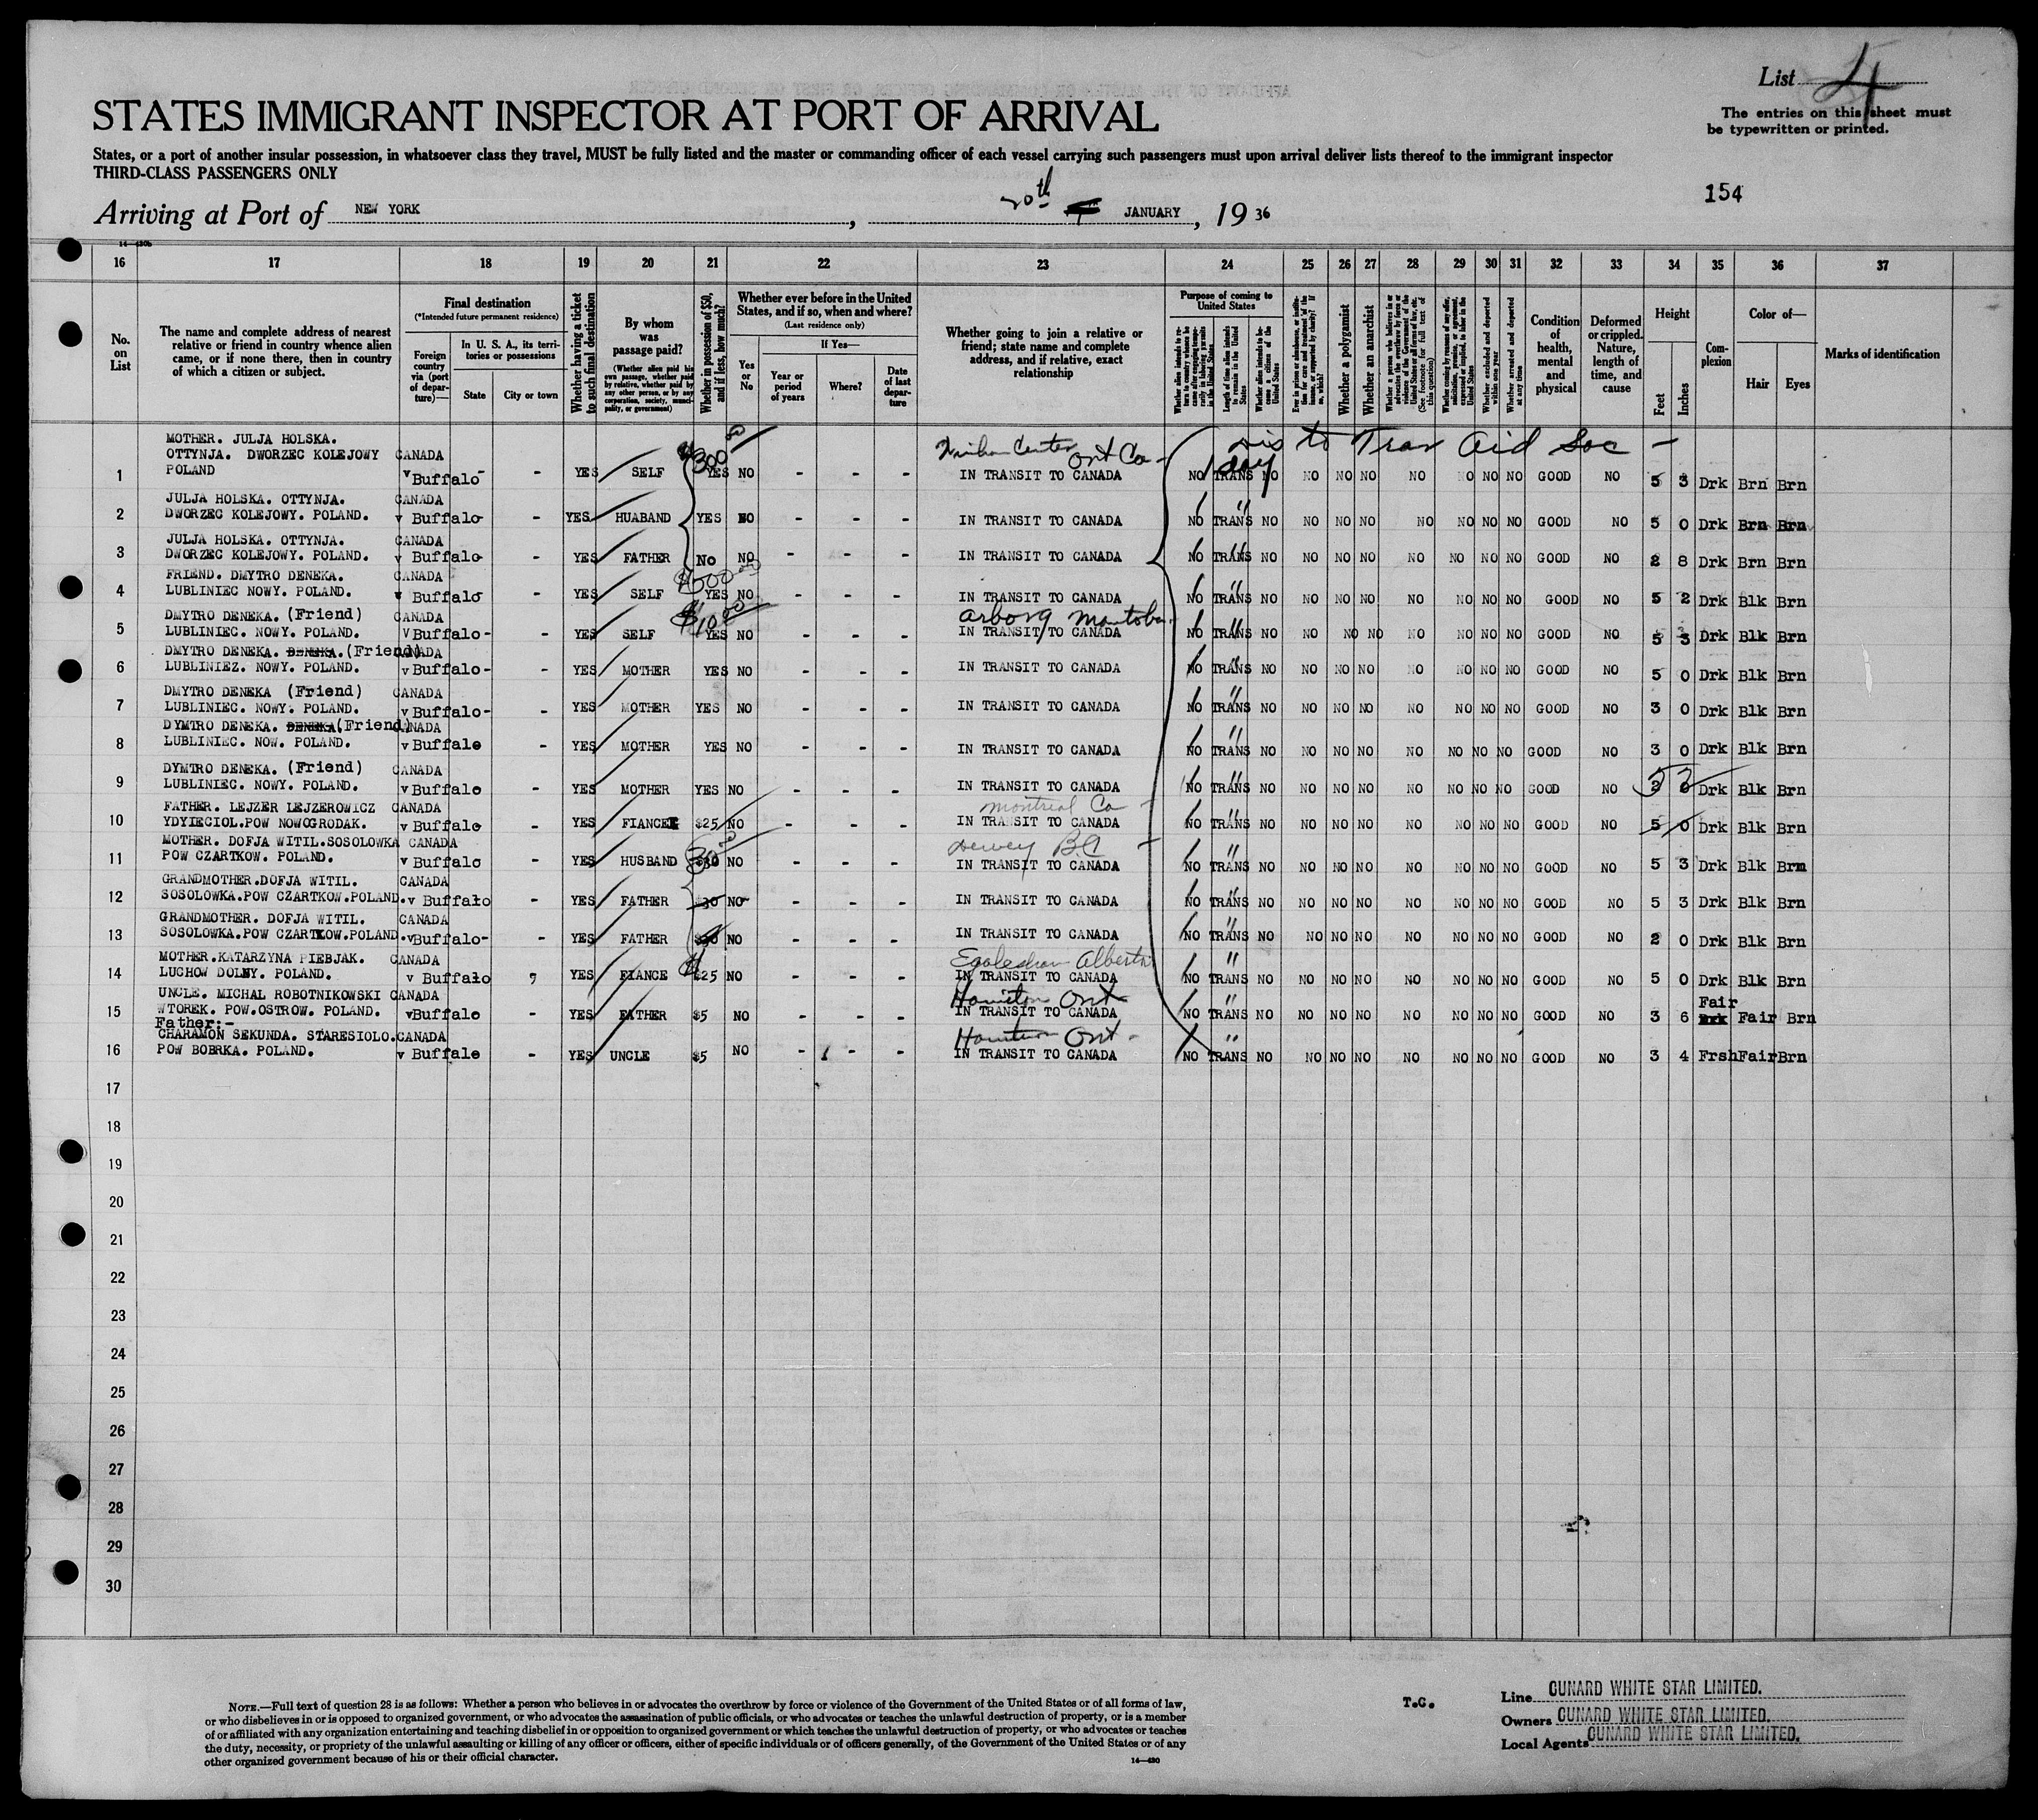 List 4
STATES IMMIGRANT INSPECTOR AT PORT OF ARRIVAL
The entries on this sheet must
be typewritten or printed.
States, or a port of another insular possession, in whatsoever class they travel, MUST be fully listed and the master or commanding officer of each vessel carrying such passengers must upon arrival deliver lists thereof to the immigrant inspector
THIRD-CLASS PASSENGERS ONLY
154
Arriving at Port of NEW YORK, 20th JANUARY, 1936
14—430b
16 17 18 19 20 21 22 23 24 25 26 27 28 29 30 31 32 33 34 35 36 37
No. on List
The name and complete address of nearest relative or friend in country whence alien came, or if none there, then in country of which a citizen or subject.
Final destination
(*Intended future permanent residence)
Foreign country via (port of departure)—
In U. S. A., its territories or possessions
State
City or town
Whether having a ticket to such final destination
By whom was passage paid?
(Whether alien paid his own passage, whether paid by relative, whether paid by any other person, or by any corporation, society, municipality, or government)
Whether in possession of $50, and if less, how much?
Whether ever before in the United States, and if so, when and where?
(Last residence only)
Yes or No
If Yes—
Year or period of years
Where?
Date of last departure
Whether going to join a relative or friend; state name and complete address, and if relative, exact relationship
Purpose of coming to United States
Length of time alien intends to remain in the United States
Whether alien intends to become a citizen of the United States
Whether a polygamist
Whether an anarchist
(See footnote for full text of this question)
Whether excluded and deported within one year
Whether arrested and deported at any time
Condition of health, mental and physical
Deformed or crippled. Nature, length of time, and cause
Height
Feet
Inches
Complexion
Color of—
Hair
Eyes
Marks of identification
Dis to Trav Aid Soc —
1 MOTHER. JULJA HOLSKA. OTTYNJA. DWORZEC KOLEJOWY POLAND CANADA v Buffalo - - YES SELF $300 00 YES NO - - - Ont Ca - IN TRANSIT TO CANADA NO 1 day TRANS NO NO NO NO NO NO NO NO GOOD NO 5 3 Drk Brn Brn
2 JULJA HOLSKA. OTTYNJA. DWORZEC KOLEJOWY. POLAND. CANADA v Buffalo- - YES HUABAND YES NO - - - IN TRANSIT TO CANADA NO TRANS " NO NO NO NO NO NO NO NO GOOD NO 5 0 Drk Brn Brn
3 JULJA HOLSKA. OTTYNJA. DWORZEC KOLEJOWY. POLAND. CANADA v Buffalo- - YES FATHER No NO - - - IN TRANSIT TO CANADA NO TRANS " NO NO NO NO NO NO NO NO GOOD NO 2 8 Drk Brn Brn
4 FRIEND. DMYTRO DENEKA. LUBLINIEC NOWY. POLAND. CANADA v Buffalo - - YES SELF YES NO - - - IN TRANSIT TO CANADA NO TRANS " NO NO NO NO NO NO NO NO GOOD NO 5 2 Drk Blk Brn
5 DMYTRO DENEKA. (Friend) LUBLINIEC. NOWY. POLAND. CANADA v Buffalo- - YES SELF $10 00 YES NO - - - Arborg Manitoba - IN TRANSIT TO CANADA NO TRANS " NO NO NO NO NO NO NO NO GOOD NO 5 3 Drk Blk Brn
6 DMYTRO DENEKA. DENEKA. (Friend) LUBLINIEZ. NOWY. POLAND. CANADA v Buffalo- - YES MOTHER YES NO - - - IN TRANSIT TO CANADA NO TRANS " NO NO NO NO NO NO NO NO GOOD NO 5 0 Drk Blk Brn
7 DMYTRO DENEKA (Friend) LUBLINIEC. NOWY. POLAND. CANADA v Buffalo- - YES MOTHER YES NO - - - IN TRANSIT TO CANADA NO TRANS " NO NO NO NO NO NO NO NO GOOD NO 3 0 Drk Blk Brn
8 DYMTRO DENEKA. DENEKA (Friend) LUBLINIEC. NOW. POLAND. CANADA v Buffalo - YES MOTHER YES NO - - - IN TRANSIT TO CANADA NO TRANS " NO NO NO NO NO NO NO NO GOOD NO 3 0 Drk Blk Brn
9 DYMTRO DENEKA. (Friend) LUBLINIEC. NOWY. POLAND. CANADA v Buffalo - YES MOTHER YES NO - - - IN TRANSIT TO CANADA NO TRANS " NO NO NO NO NO NO NO NO GOOD NO 5 3 Drk Blk Brn
10 FATHER. LEJZER LEJZEROWICZ YDYIECIOL.POW NOWOGRODAK. CANADA v Buffalo - YES FIANCEE $25 NO - - - Montreal Ca - IN TRANSIT TO CANADA NO TRANS " NO NO NO NO NO NO NO NO GOOD NO 5 0 Drk Blk Brn
11 MOTHER. DOFJA WITIL.SOSOLOWKA POW CZARTKOW. POLAND. CANADA v Buffalo - YES HUSBAND $30 NO - - - Dewey BC - IN TRANSIT TO CANADA NO TRANS " NO NO NO NO NO NO NO NO GOOD NO 5 3 Drk Blk Brn
12 GRANDMOTHER.DOFJA WITIL. SOSOLOWKA.POW CZARTKOW.POLAND. CANADA v Buffalo - YES FATHER $30 NO - - - IN TRANSIT TO CANADA NO TRANS " NO NO NO NO NO NO NO NO GOOD NO 5 3 Drk Blk Brn
13 GRANDMOTHER. DOFJA WITIL. SOSOLOWKA.POW CZARTKOW.POLAND. CANADA v Buffalo- - YES FATHER $30 NO - - - IN TRANSIT TO CANADA NO TRANS " NO NO NO NO NO NO NO NO GOOD NO 2 0 Drk Blk Brn
14 MOTHER.KATARZYNA PIEBJAK. LUCHOW DOLNY. POLAND. CANADA v Buffalo - YES FIANCE $25 NO - - - Alberta IN TRANSIT TO CANADA NO TRANS " NO NO NO NO NO NO NO NO GOOD NO 5 0 Drk Blk Brn
15 UNCLE. MICHAL ROBOTNIKOWSKI WTOREK. POW.OSTROW. POLAND. CANADA v Buffalo - YES FATHER $5 NO - - - Hamilton Ont IN TRANSIT TO CANADA NO TRANS " NO NO NO NO NO NO NO NO GOOD NO 3 6 Fair Drk Fair Brn
16 Father:- CHARAMON SEKUNDA. STARESIOLO. POW BOBRKA. POLAND. CANADA v Buffalo - YES UNCLE $5 NO - - - Hamilton Ont - IN TRANSIT TO CANADA NO TRANS " NO NO NO NO NO NO NO NO GOOD NO 3 4 Frsh Fair Brn
17
18
19
20
21
22
23
24
25
26
27
28
29
30
NOTE.—Full text of question 28 is as follows: Whether a person who believes in or advocates the overthrow by force or violence of the Government of the United States or of all forms of law,
or who disbelieves in or is opposed to organized government, or who advocates the assassination of public officials, or who advocates or teaches the unlawful destruction of property, or is a member
of or affiliated with any organization entertaining and teaching disbelief in or opposition to organized government or which teaches the unlawful destruction of property, or who advocates or teaches
the duty, necessity, or propriety of the unlawful assaulting or killing of any officer or officers, either of specific individuals or of officers generally, of the Government of the United States or of any
other organized government because of his or their official character.
14—430
T.C.
Line CUNARD WHITE STAR LIMITED.
Owners CUNARD WHITE STAR LIMITED.
Local Agents CUNARD WHITE STAR LIMITED.